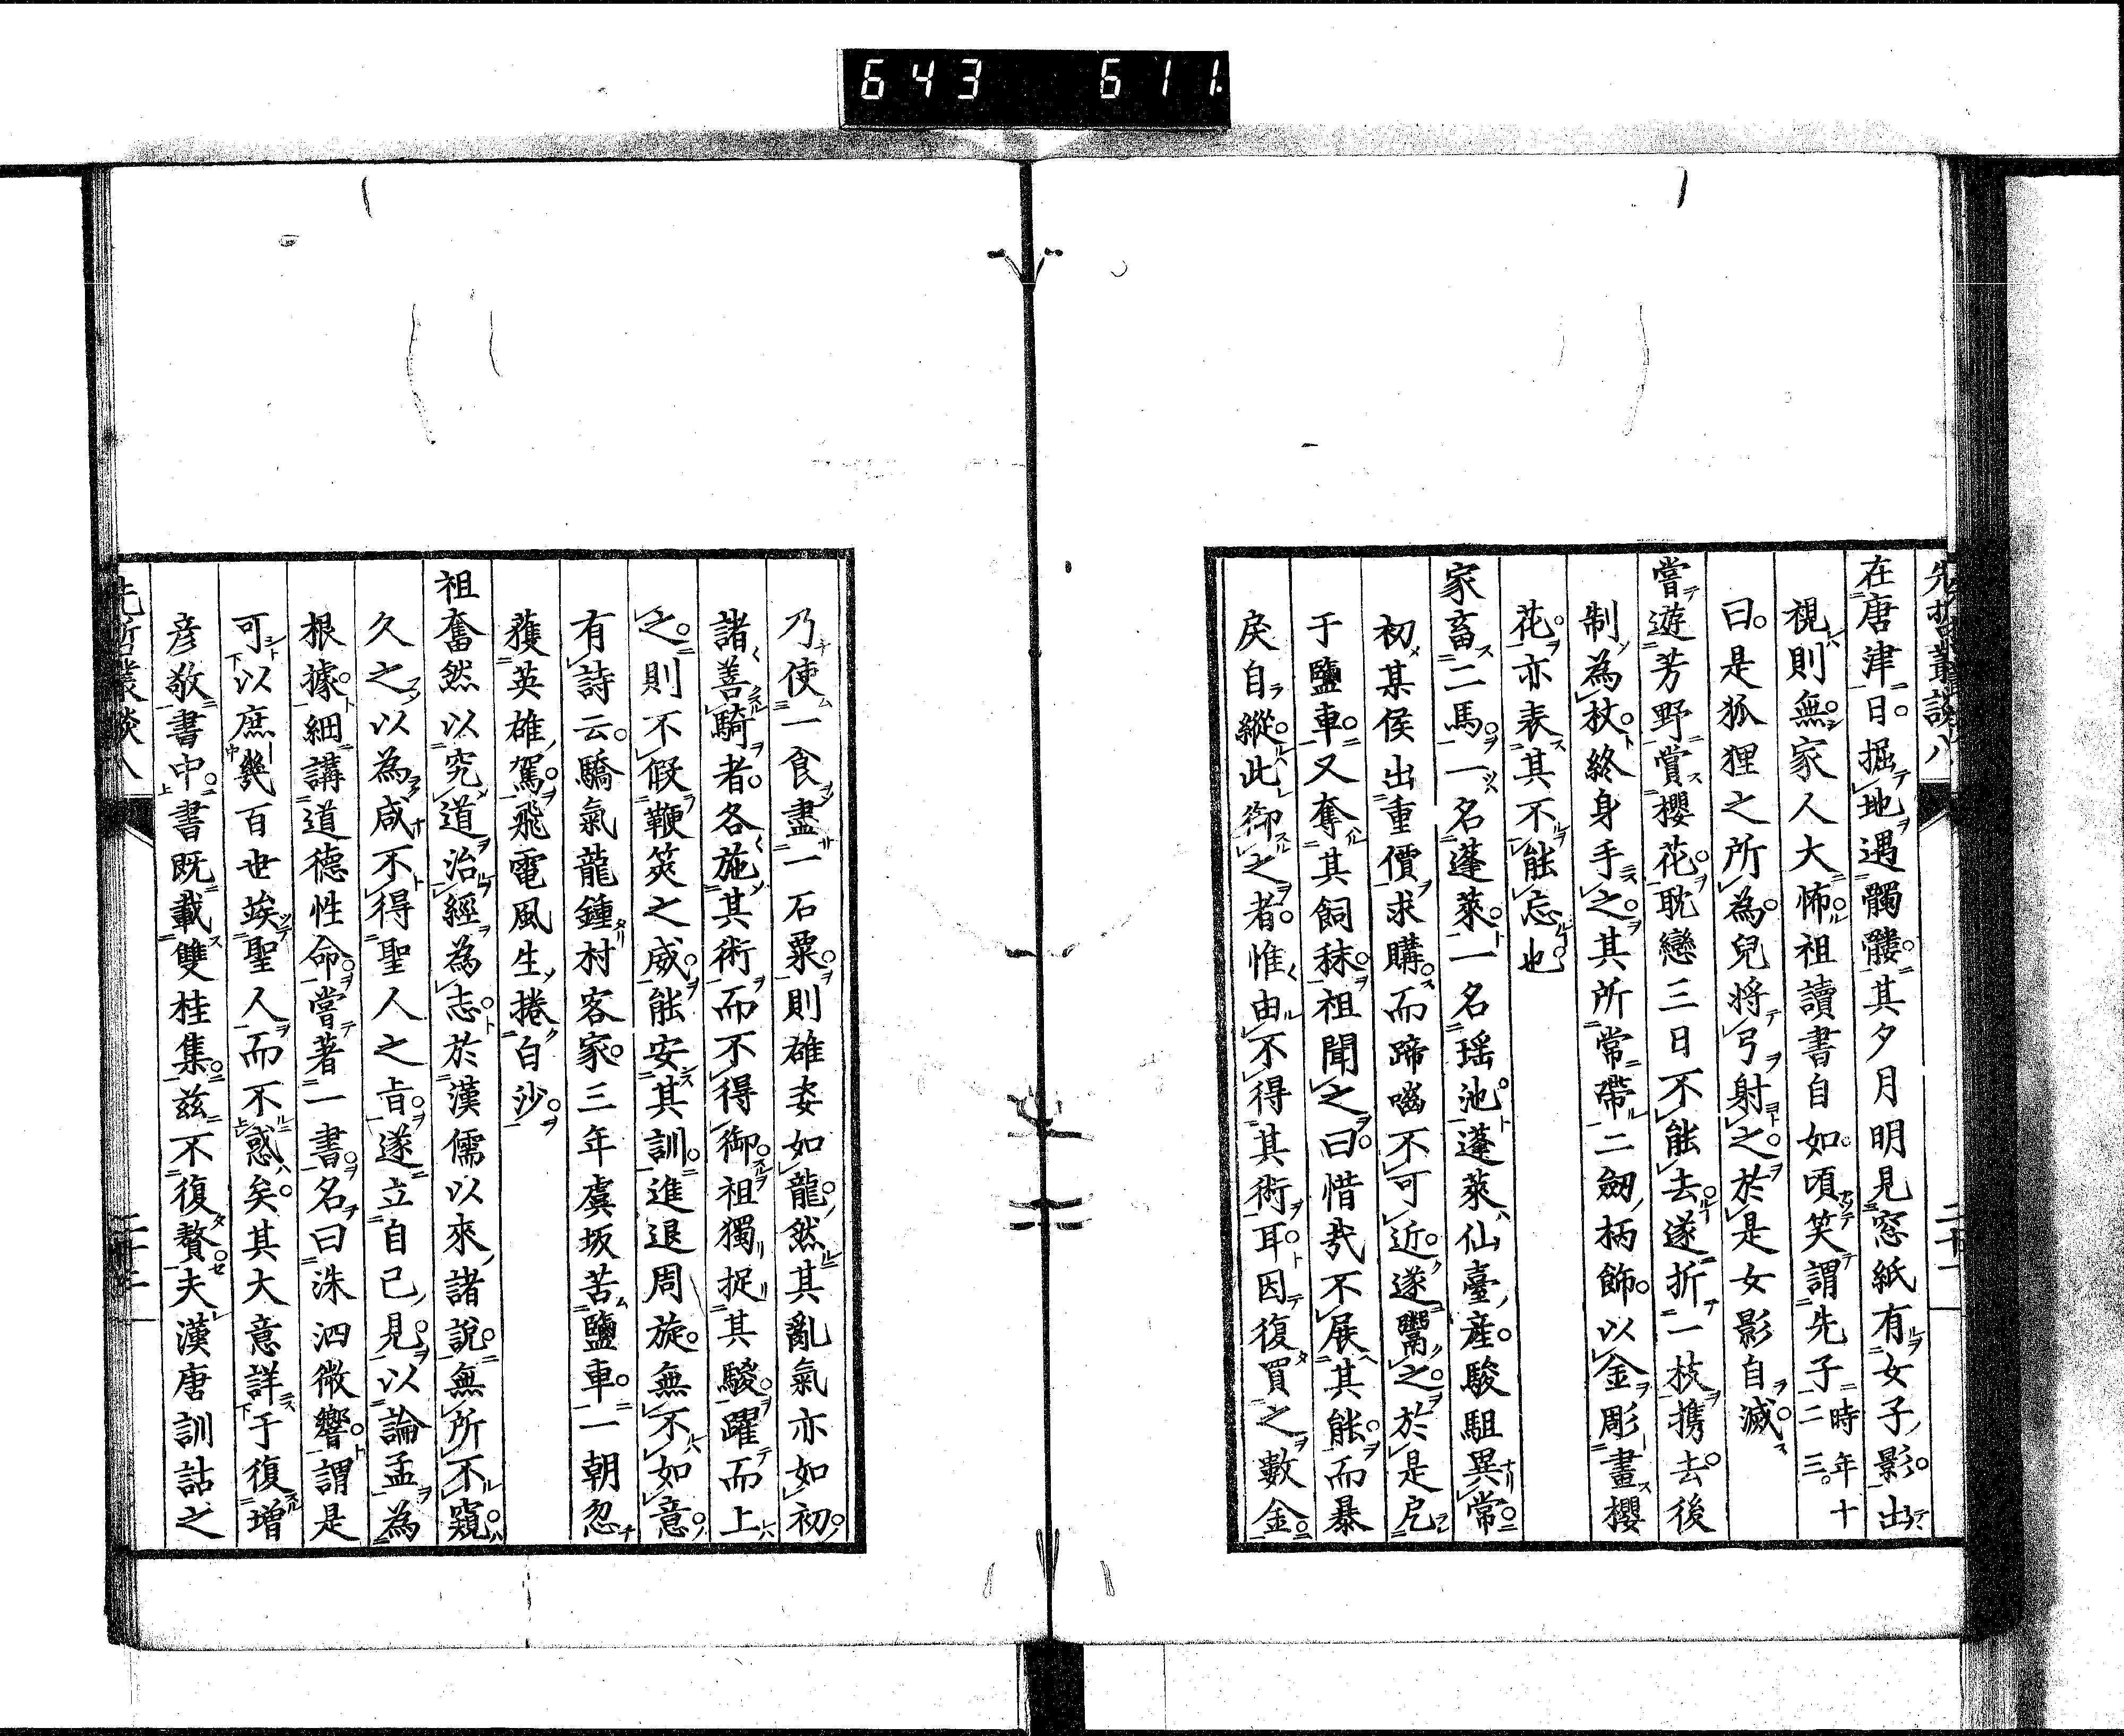 643 611
先哲叢談八
二十二
在唐津日掘地遇髑髏其夕月明見窓紙有女子影出
視則無家人大怖祖讀書自如頃笑謂先子時年十二三
曰是狐狸之所為兒將弓射之於是女影自滅
嘗遊芳野賞櫻花耽戀三日不能去遂折一枝携去後
制為杖終身手之其所常帶二劔柄飾以金彫畫櫻
花亦表其不能忘也
家畜二馬一名蓬萊一名瑶池蓬萊仙臺產駿駔異常
初某侯出重價求購而蹄嚙不可近遂鬻之於是戹
于鹽車又奪其飼秣祖聞之曰惜哉不展其能而暴
戾自縱此御之者惟由不得其術耳因復買之數金
乃使一食盡一石粟則雄姿如龍然其亂氣亦如初
諸善騎者各施其術而不得御祖獨捉其駿躍而上
之則不假鞭筴之威能安其訓進退周旋無不如意
有詩云驕氣龍鍾村客家三年虞坂苦鹽車一朝忽
獲英雄駕飛電風生捲白沙
祖奮然以究道治經為志於漢儒以來諸說無所不窺
久之以為咸不得聖人之旨遂立自己見以論孟為
根據細講道德性命嘗著一書名曰洙泗微響謂是
可以庶幾百世竢聖人而不惑矣其大意詳于復增
彦敬書中書既載雙桂集茲不復贅夫漢唐訓詁之
先哲叢談八